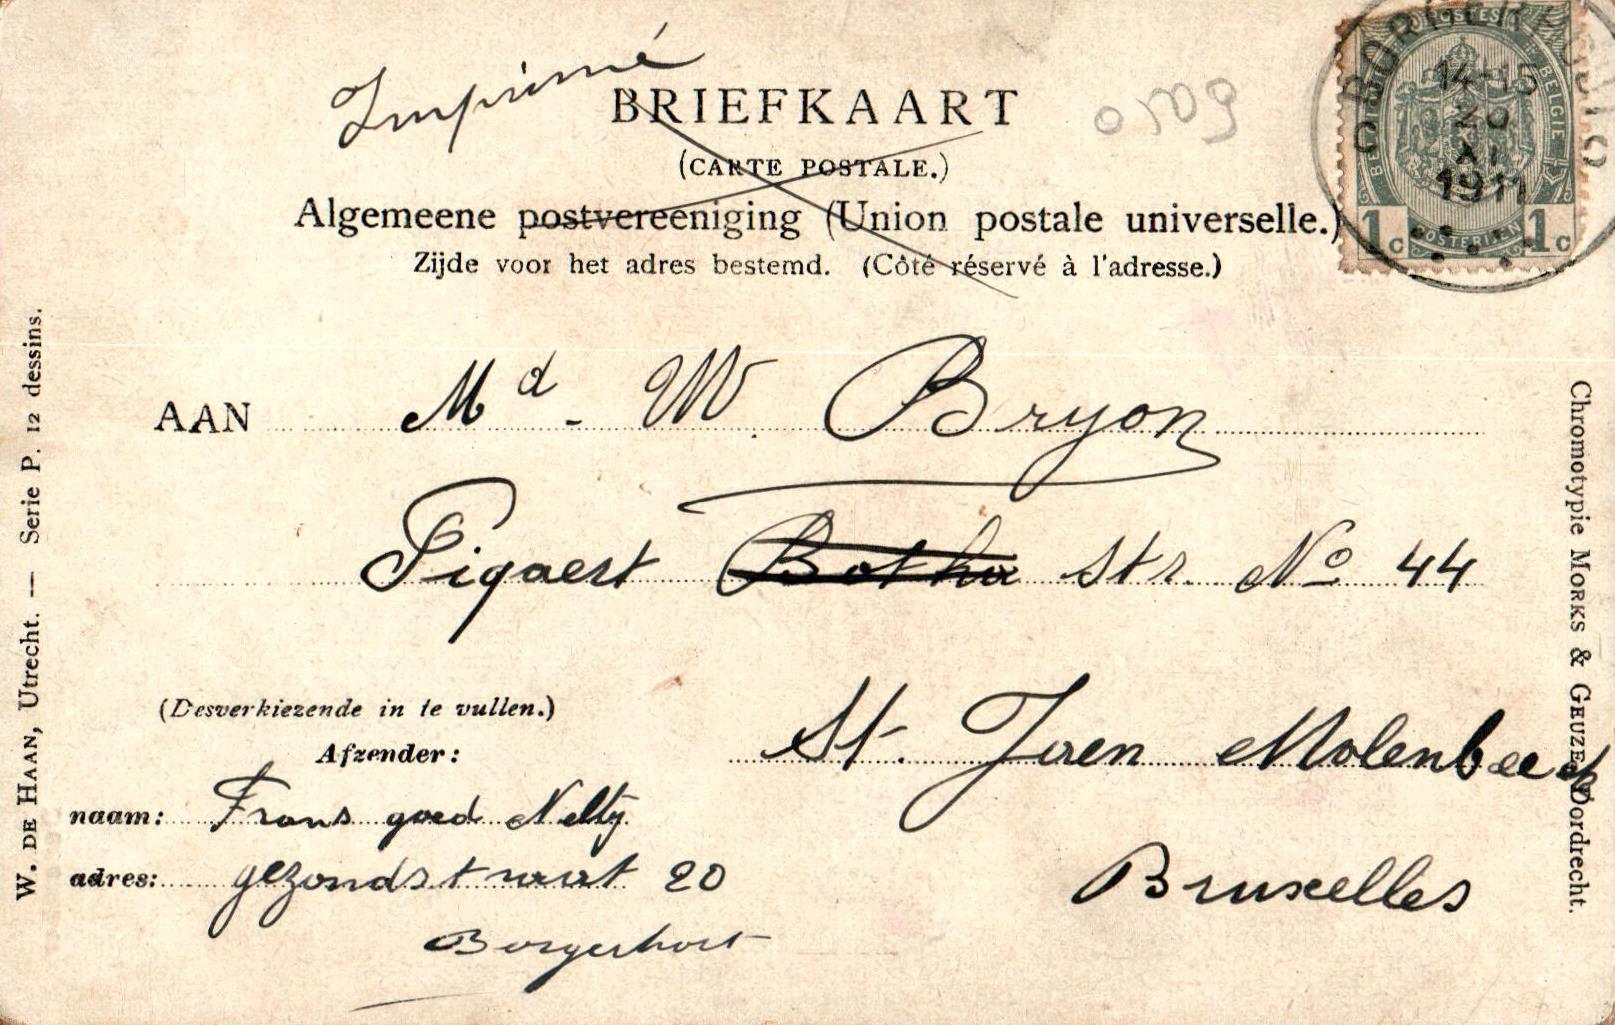 Imprimé
BRIEFKAART
(CARTE POSTALE.)
Algemeene postvereeniging (Union postale universelle.)
Zijde voor het adres bestemd. (Côté réservé à l'adresse.)
POSTES
BELGIE
POSTERIJEN
1 c 1 c
BORGERHOUT
14-15
20
XI
1911
AAN Md. W. Bryon
Pigaert Botha str. No 44
St. Jaen Molenbeek
Bruxelles
(Desverkiezende in te vullen.)
Afzender:
naam: Frans goed Nelly
adres: gezondstraat 20
Borgerhout
W. DE HAAN, Utrecht. — Serie P. 12 dessins.
Chromotypie MORKS & GEUZE Dordrecht.